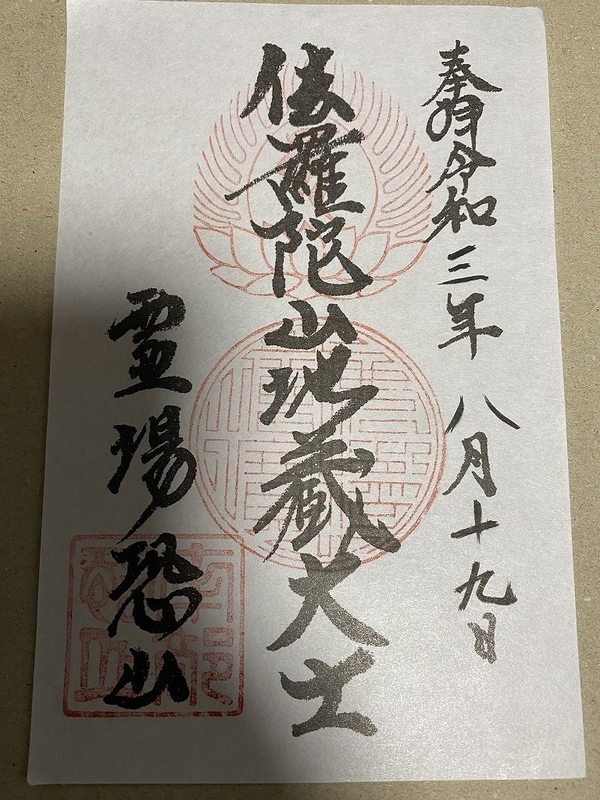 奉拝 令和三年 八月十九日
伎羅陀山地蔵大士
霊場恐山